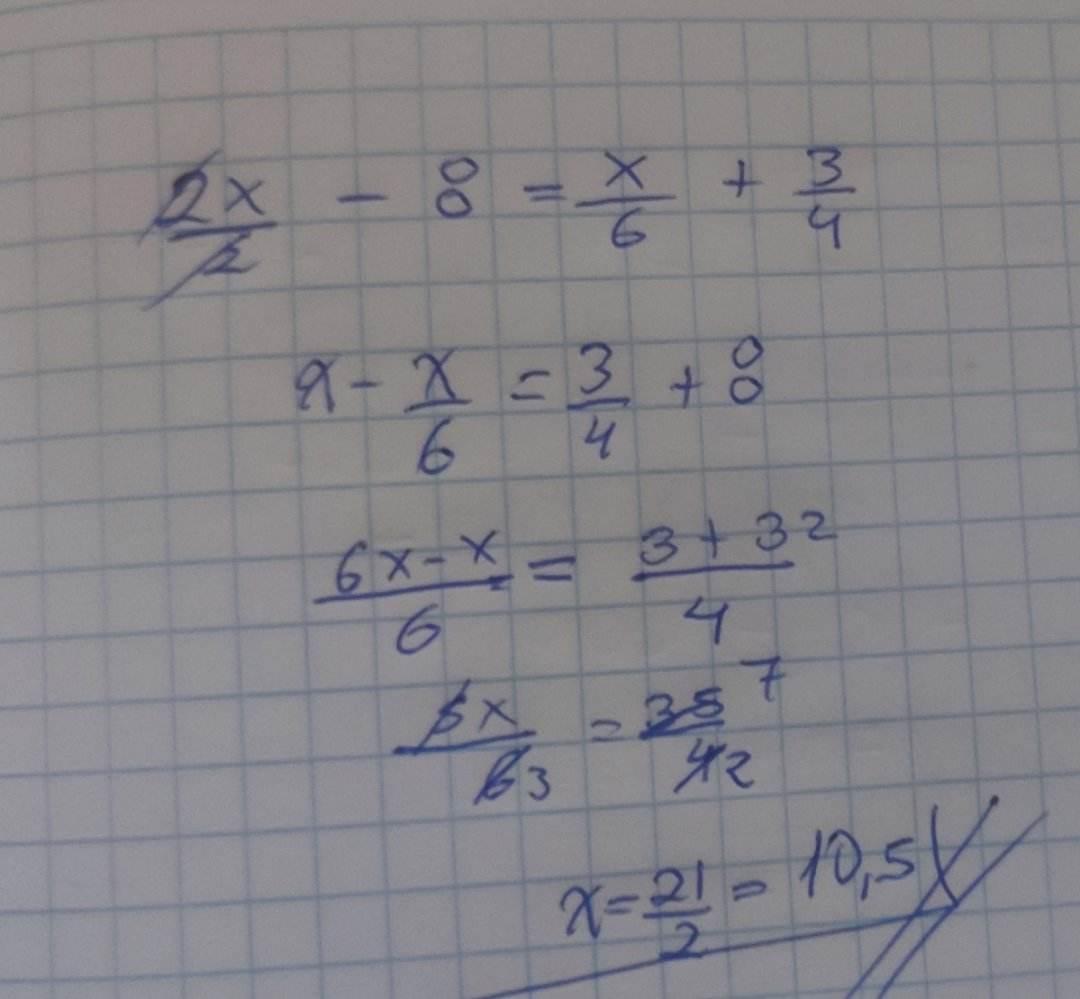 2x/2 - 8 = x/6 + 3/4
x - x/6 = 3/4 + 8
6x - x/6 = 3 + 32/4
5x/6 3 = 35 7/4 2
x = 21/2 = 10,5